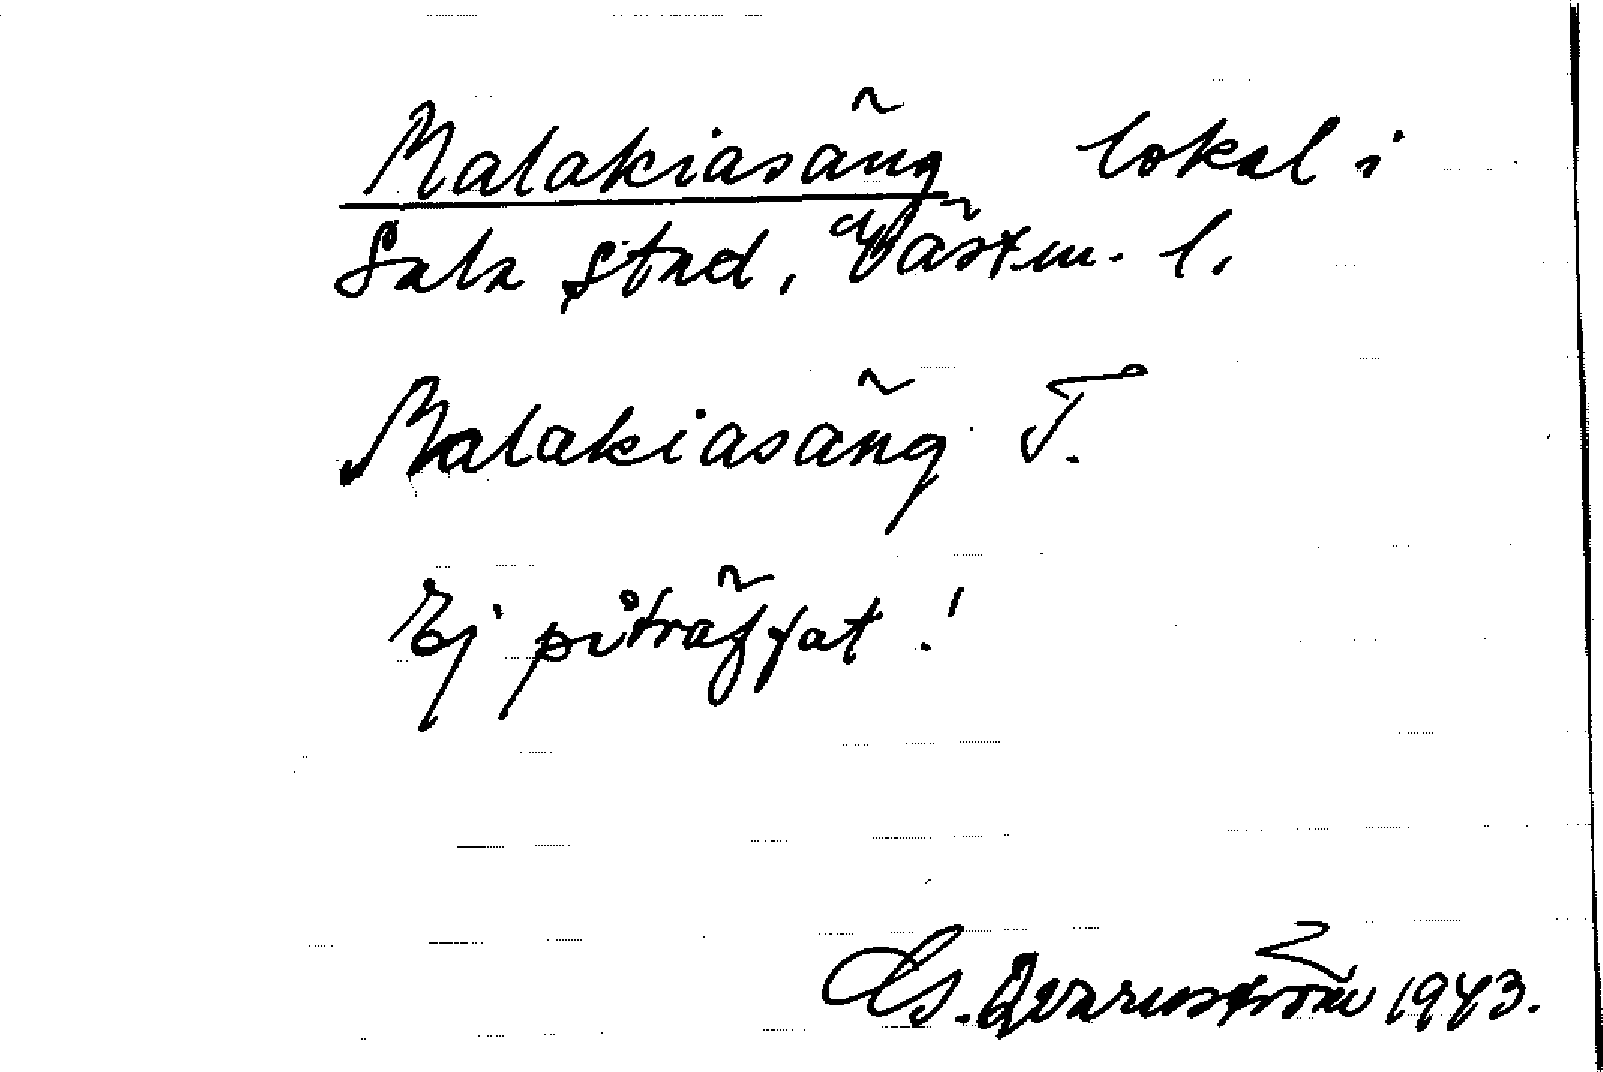 Malakiasäng lokal i
Sala stad, Västm. l.
Malakiasäng T.
Ej påträffat!
Es. Qvarnström 1943.